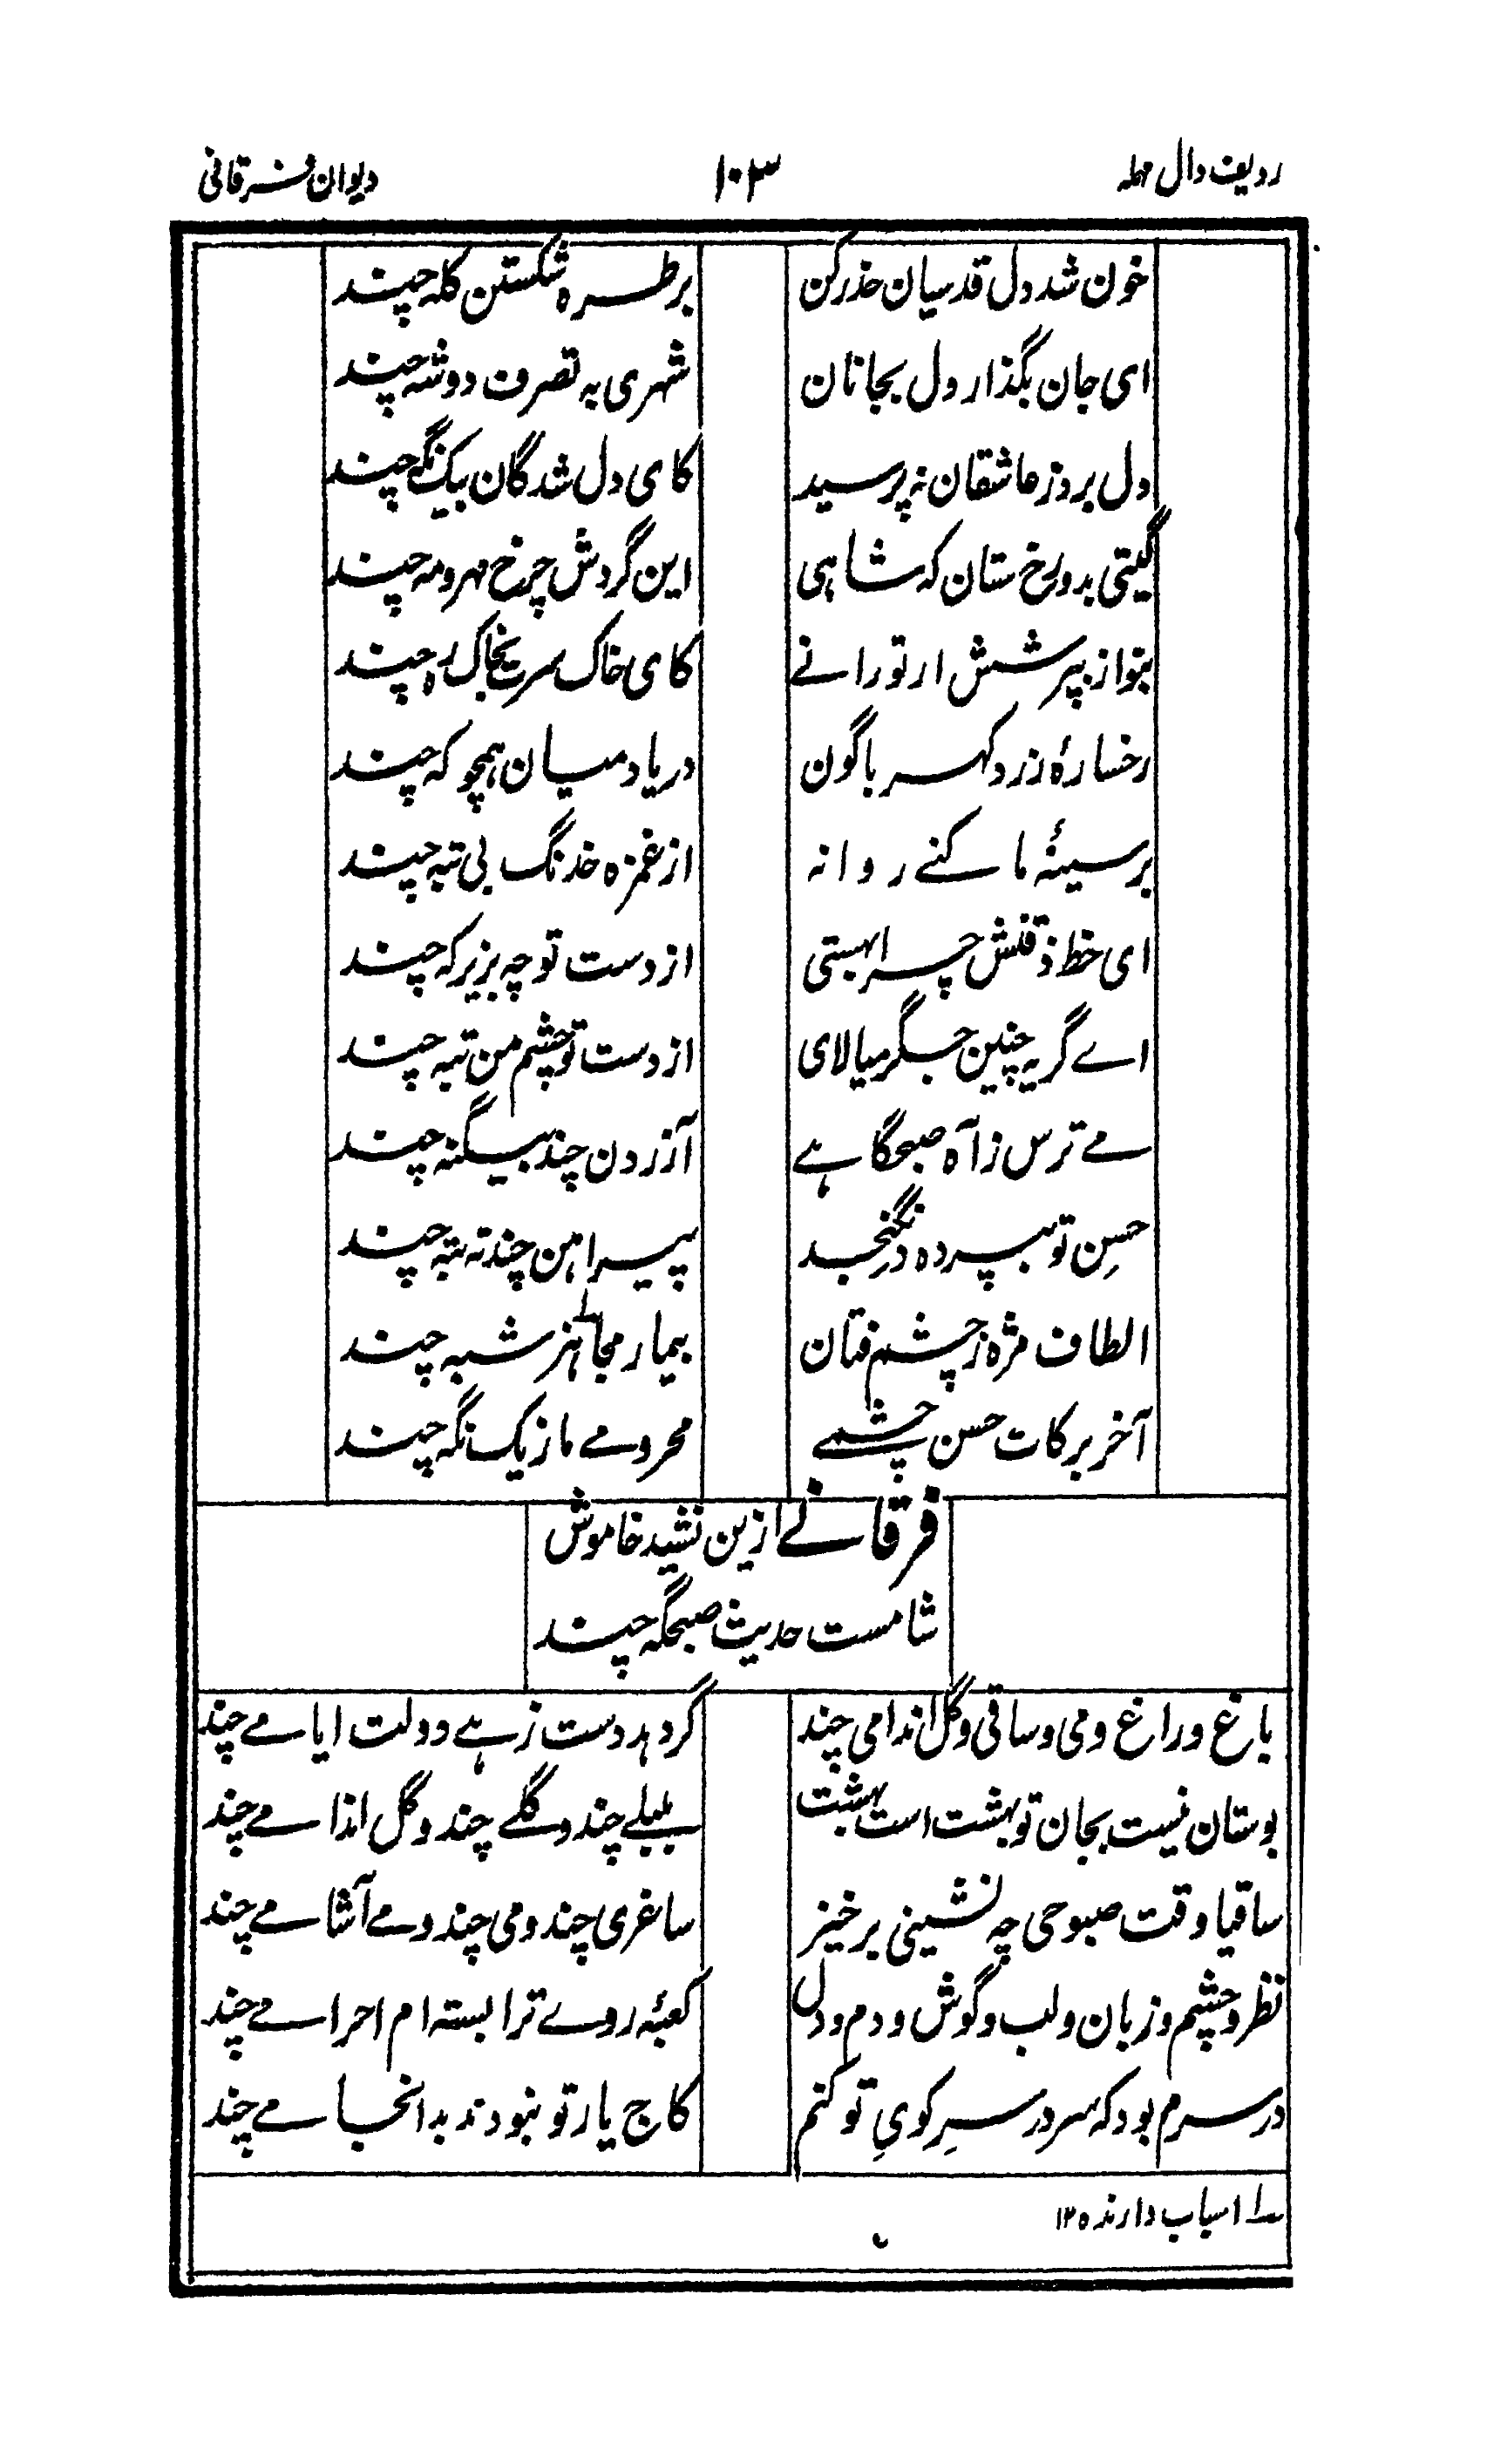 ردیف دال مہملہ
۱۰۳
دیوان فرقانی
خون شد دل قدسیان حذر کن
بر طرہ شکستن کلہ چند
ای جان بگذار دل بجانان
شہری بہ تصرف دو شہ چند
دل برد ز عاشقان نہ پرسید
کای دل شدگان بیک نگہ چند
گیتی بدو رخ ستان کہ شاہی
این گردش چرخ مہر و مہ چند
بنواز بپرسشش ار تو رانے
کای خاک سر بخاک رہ چند
رخسارۂ زرد کہربا گون
دریاد میان ہمچو کہ چند
بر سینۂ ما کنے روانہ
از غمزہ خدنگ بی تبہ چند
ای خط ذقنش چرا بہستی
از دست تو چہ بزیر کہ چند
اے گریہ چنین جگر میالای
از دست تو چشم من تبہ چند
مے ترس ز آہ صبحگاہے
آزردن چند بیگنہ چند
حسنِ تو بپردہ در نگنجد
پیراہن چند تہ بتہ چند
الطاف مژہ ز چشم فتان
بیمار مجاہز سبہ چند
آخر برکات حسن چشمے
محرومے ما ز یک نگہ چند
فرقانے ازین نشید خاموش
شامست حدیث صبحگہ چند
باغ و راغ و می و ساقی و گل اندامی چند
گر دہد دست زہے دولت ایامے چند
بوستان نیست بجان تو بہشت است بہشت
بلبلے چند و گلے چند و گل اندامے چند
ساقیا وقت صبوحی چہ نشینی برخیز
ساغری چند و می چند و مے آشامے چند
نظر و چشم و زبان و لب و گوش و دم و دل
کعبۂ روے ترا بستہ ام احرامے چند
در سرم بود کہ سر در سرِ کویِ تو کنم
کاج یار تو نبودند بدانجامے چند
؎۱ اسباب دارندہ ۱۲